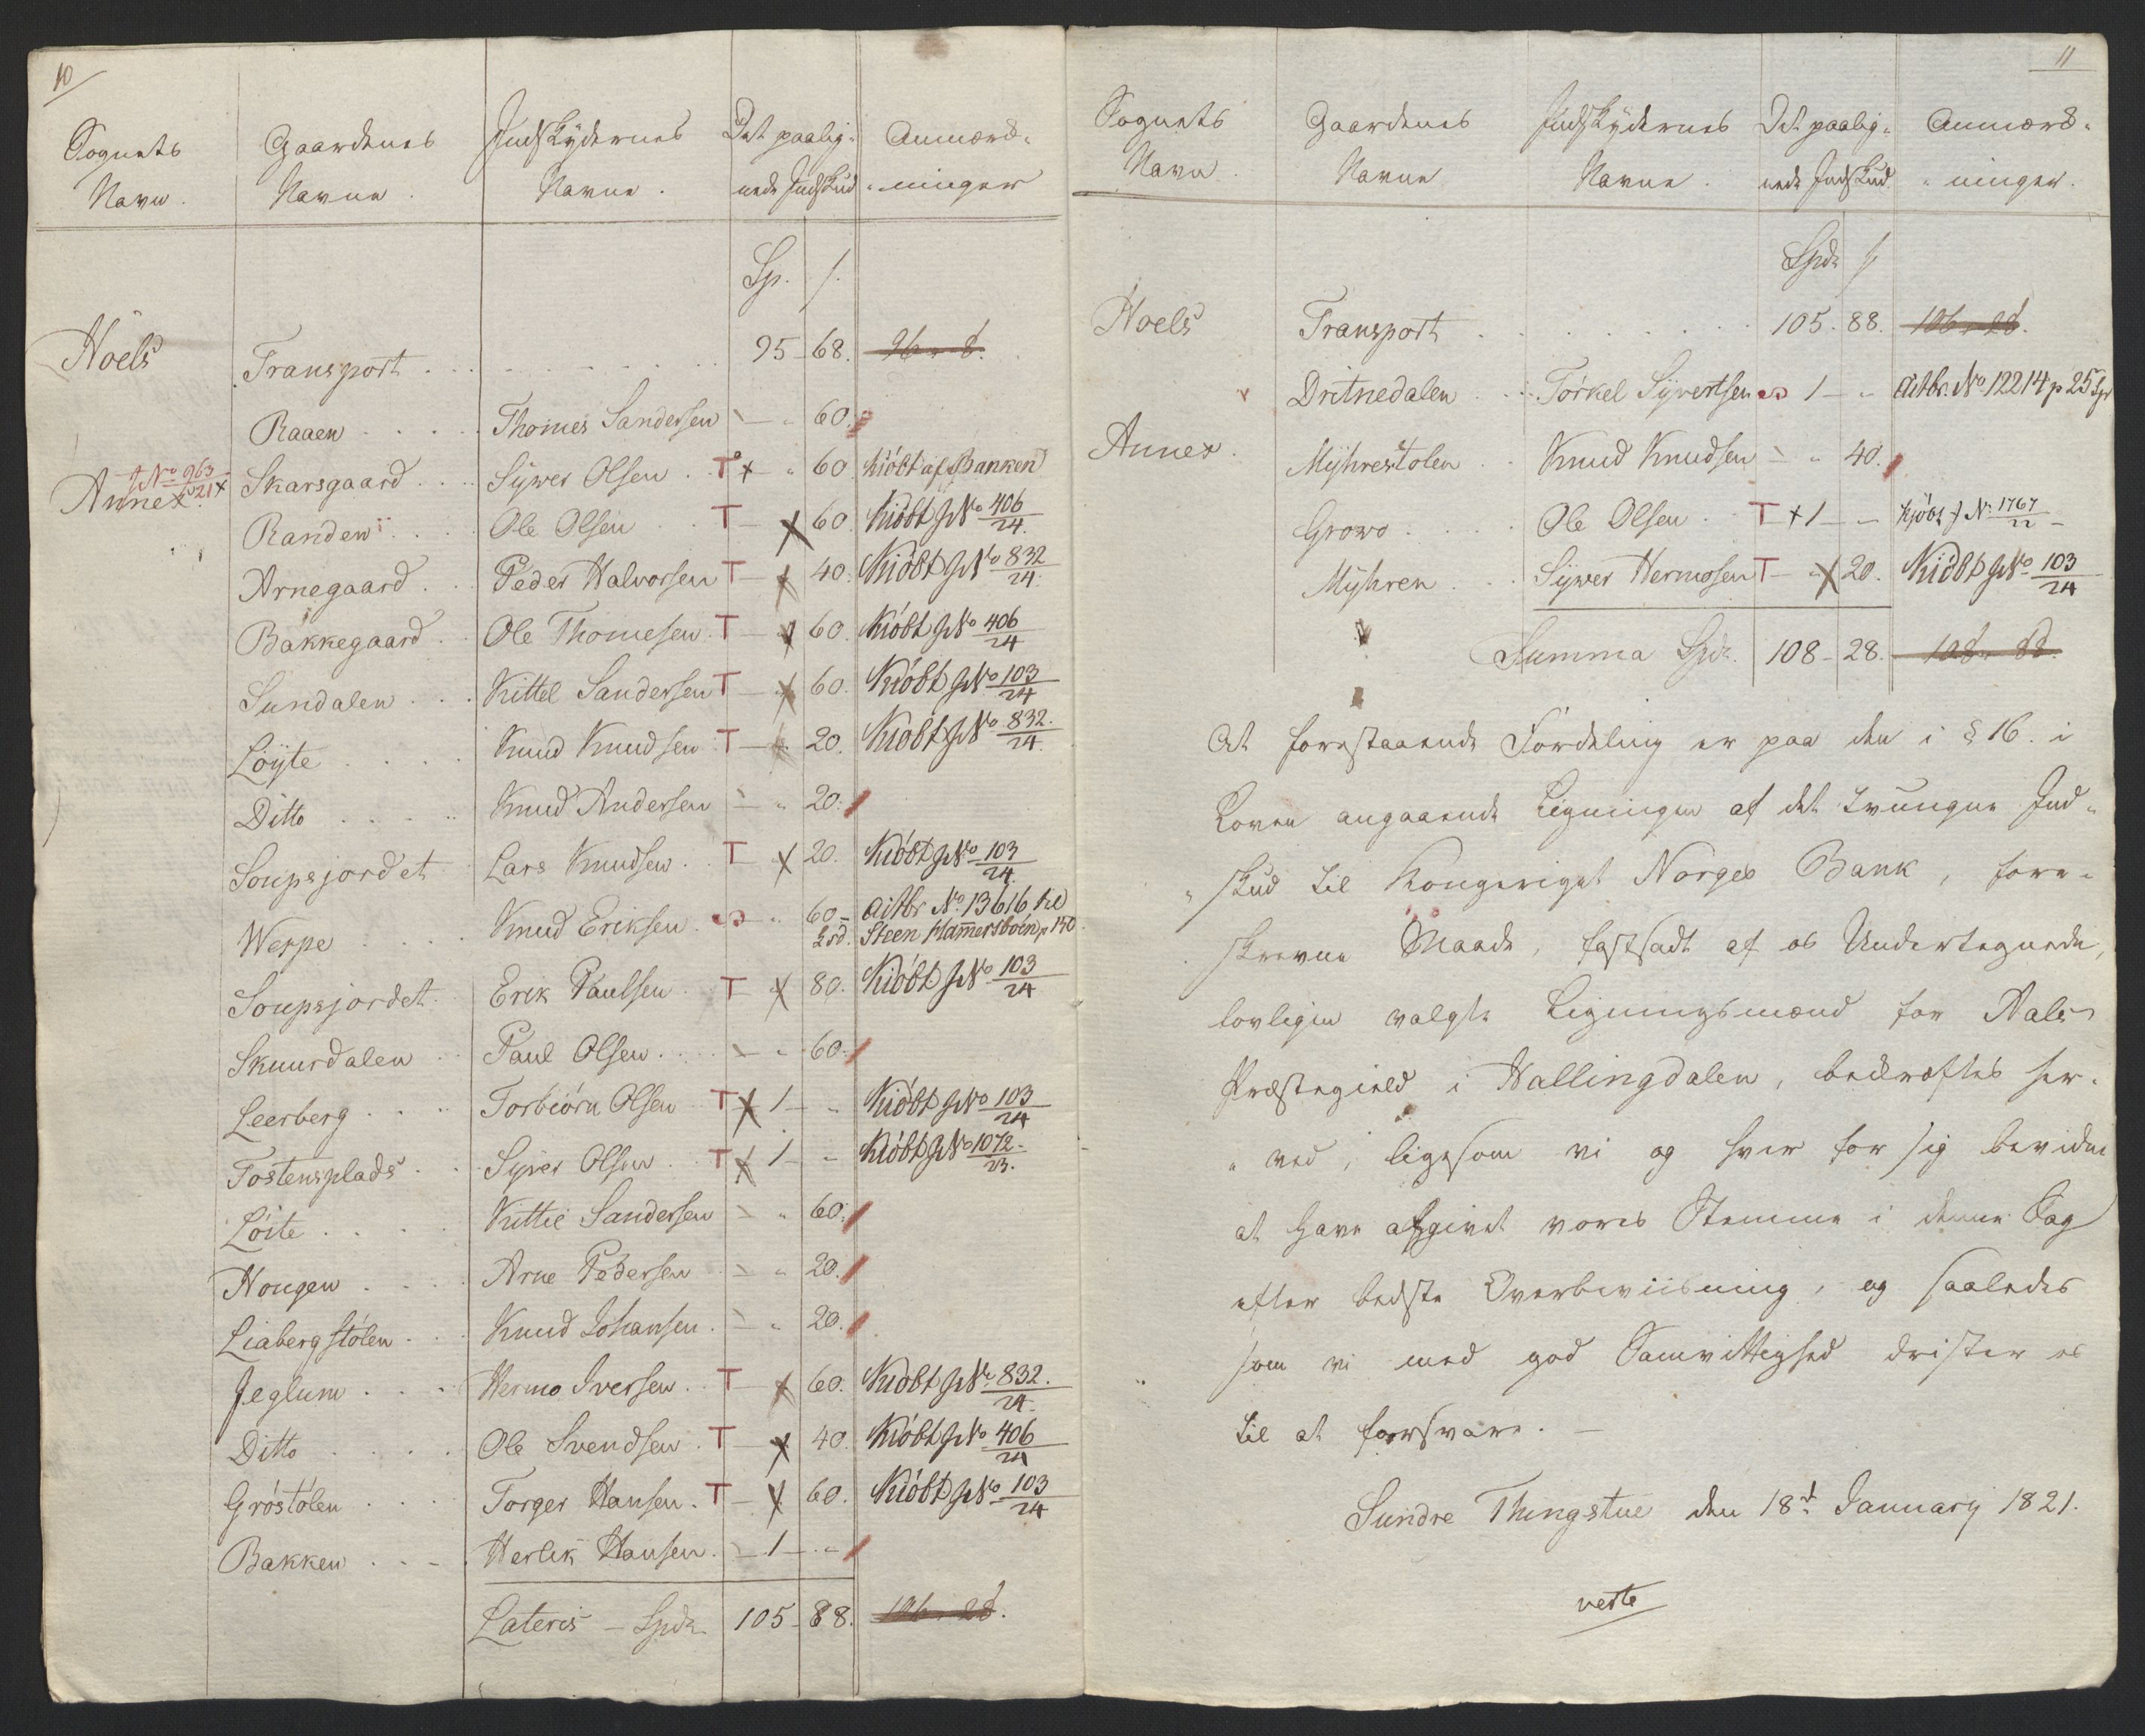 10
Sognets Navn. Gaardenes Navne. Indskydernes Navne. Det paalignede Indskud Anmærkninger
Sp. s.
Höels Transport 95 - 68. 96 - 8.
Raaen Thomes Sandersen - " 60.
J No 963 21
Annex. Skarsgaard Syver Olsen T + " 60 Kiöbt af Banken
Randen Ole Olsen T - X 60. Kiöbt J No 406/24.
Arnegaard Peder Halvorsen T - X 40. Kiöbt J No 832/24.
Bakkegaard Ole Thomesen T - X 60. Kiöbt J No 406/24
Sundalen Kittel Sandersen T - X 60. Kiöbt J No 103/24
Löyte Knud Knudsen T - X 20. Kiöbt J No 832/24.
Ditto Knud Andersen - " 20.
Soupsjordet Lars Knudsen T X 20. Kiöbt J No 103/24.
Werpe Knud Eriksen - " 60 - Actbr No 13616 til
Steen Hamersboen p 150
Soupsjordet Erik Paulsen T X 80. Kiöbt J No 103/24
Skuurdalen Paul Olsen - " 60.
Leerberg Torbiörn Olsen T X 1 - " Kiöbt J No 103/24
Tostensplads Syver Olsen T X 1 - " Kiöbt J No 1072/23.
Löite Kittil Sandersen - " 60.
Hougen Arne Pedersen - " 20.
Liabergstölen Knud Johansen - " 20.
Jeglum Hermo Iversen T - X 60. Kiöbt J No 832/24.
Ditto Ole Svendsen T - X 40. Kiöbt J No 406/24
Gröstölen Torger Hansen T - X 60. Kiöbt J No 103/24
Bakken Herlek Hansen - 1 - "
Lateris - Spdr 105 - 88. 106 - 28.
11
Sognets Navn. Gaardenes Navne Indskydernes Navne. Det paalignede Indskud Anmærkninger.
Spdr s
Hoels Transport 105. 88. 106 - 28.
Dritnedalen Torkel Syvertsen 1 - " Actbr. No 12214 p 25 Sp
Annex. Myhrestolen Knud Knudsen - " 40.
Growo Ole Olsen T + 1 - - Kjöbt J No 1767/22 -
Myhren Syver Hermosen T - X 20. Kiöbt J No 103/24
Summa Spdr. 108 - 28. 108 - 88.
At forestaaende Fordeling er paa den i § 16. i
Loven angaaende Ligningen af det tvungne Ind-
skud til Kongeriget Norges Bank, fore-
skrevne Maade, fastsadt af os Undertegnede,
lovligen valgte Ligningsmænd for Aals
Præstegield i Hallingdalen, bekræftes her-
ved, ligesom vi og hver for sig bevidne
at have afgivet vores Stemme i denne Sag
efter bedste Overbeviisning, og saaledes
som vi med god Samvittighed drister os
til at forsvare. -
Sundre Thingstue den 18d Januarj 1821.
verte